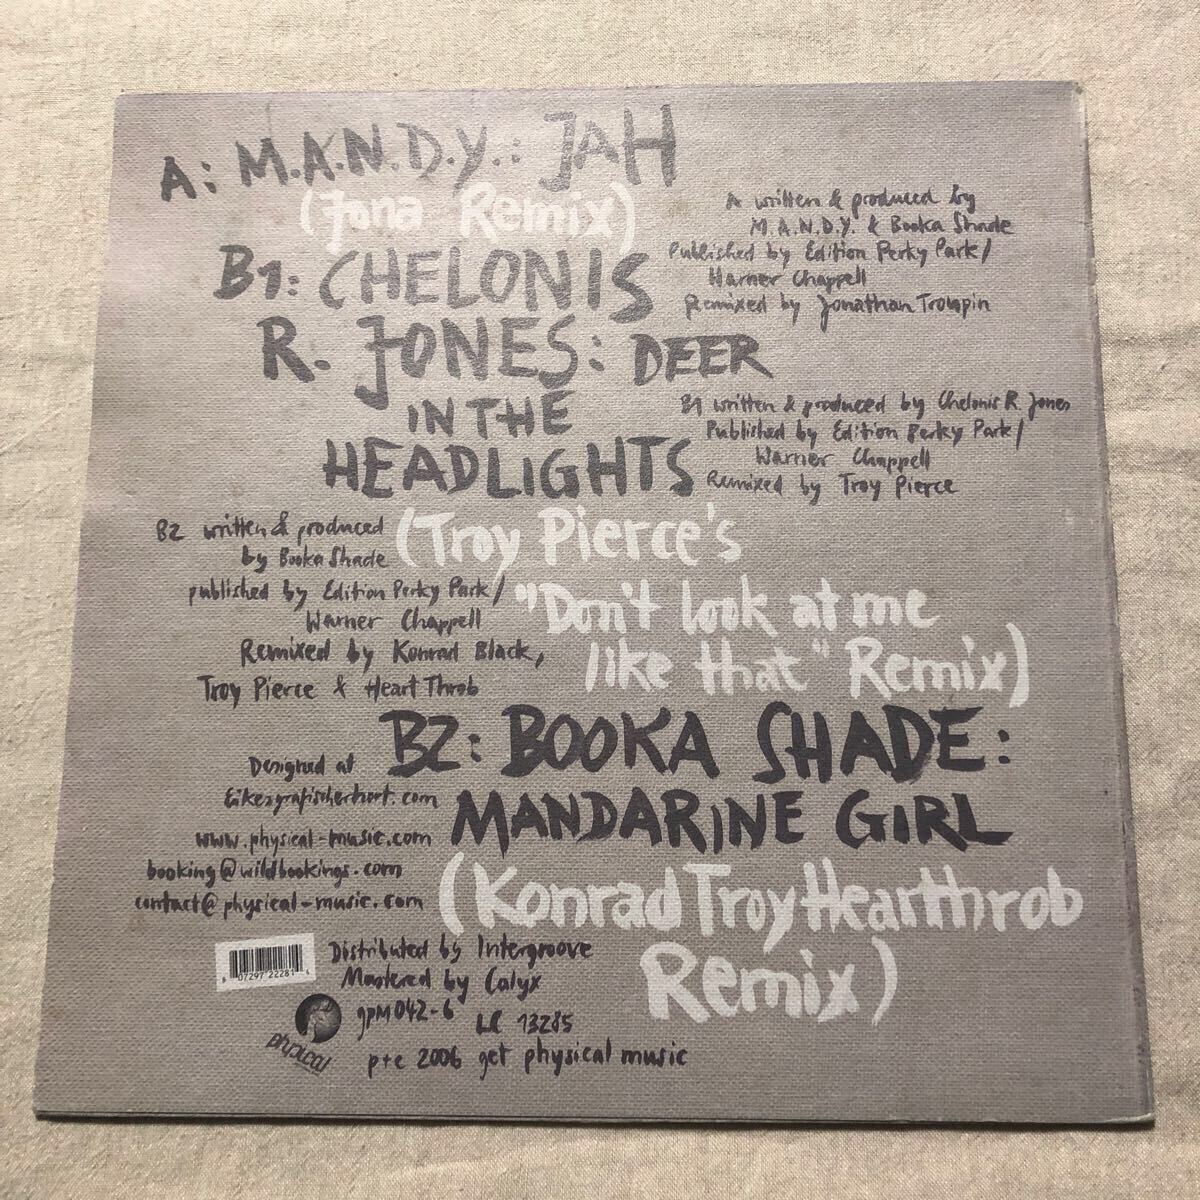 A: M.A.N.D.Y.: JAH
(Jona Remix)
A written & produced by
M.A.N.D.Y. & Booka Shade
Published by Edition Perky Park/
Warner Chappell
Remixed by Jonathan Troupin
B1: CHELONIS
R. JONES: DEER
IN THE
HEADLIGHTS
B1 written & produced by Chelonis R. Jones
Published by Edition Perky Park/
Warner Chappell
Remixed by Troy Pierce
(Troy Pierce's
"Don't look at me
like that" Remix)
B2 written & produced
by Booka Shade
published by Edition Perky Park/
Warner Chappell
Remixed by Konrad Black,
Troy Pierce & Heart Throb
B2: BOOKA SHADE:
MANDARINE GIRL
(Konrad Troy Hearthrob
Remix)
Designed at
Eikesgrafischerhort.com
www.physical-music.com
booking@wildbookings.com
contact@physical-music.com
07297 22281
Distributed by Intergroove
Mastered by Calyx
gpm042-6 LC 13285
physical
p+c 2006 get physical music